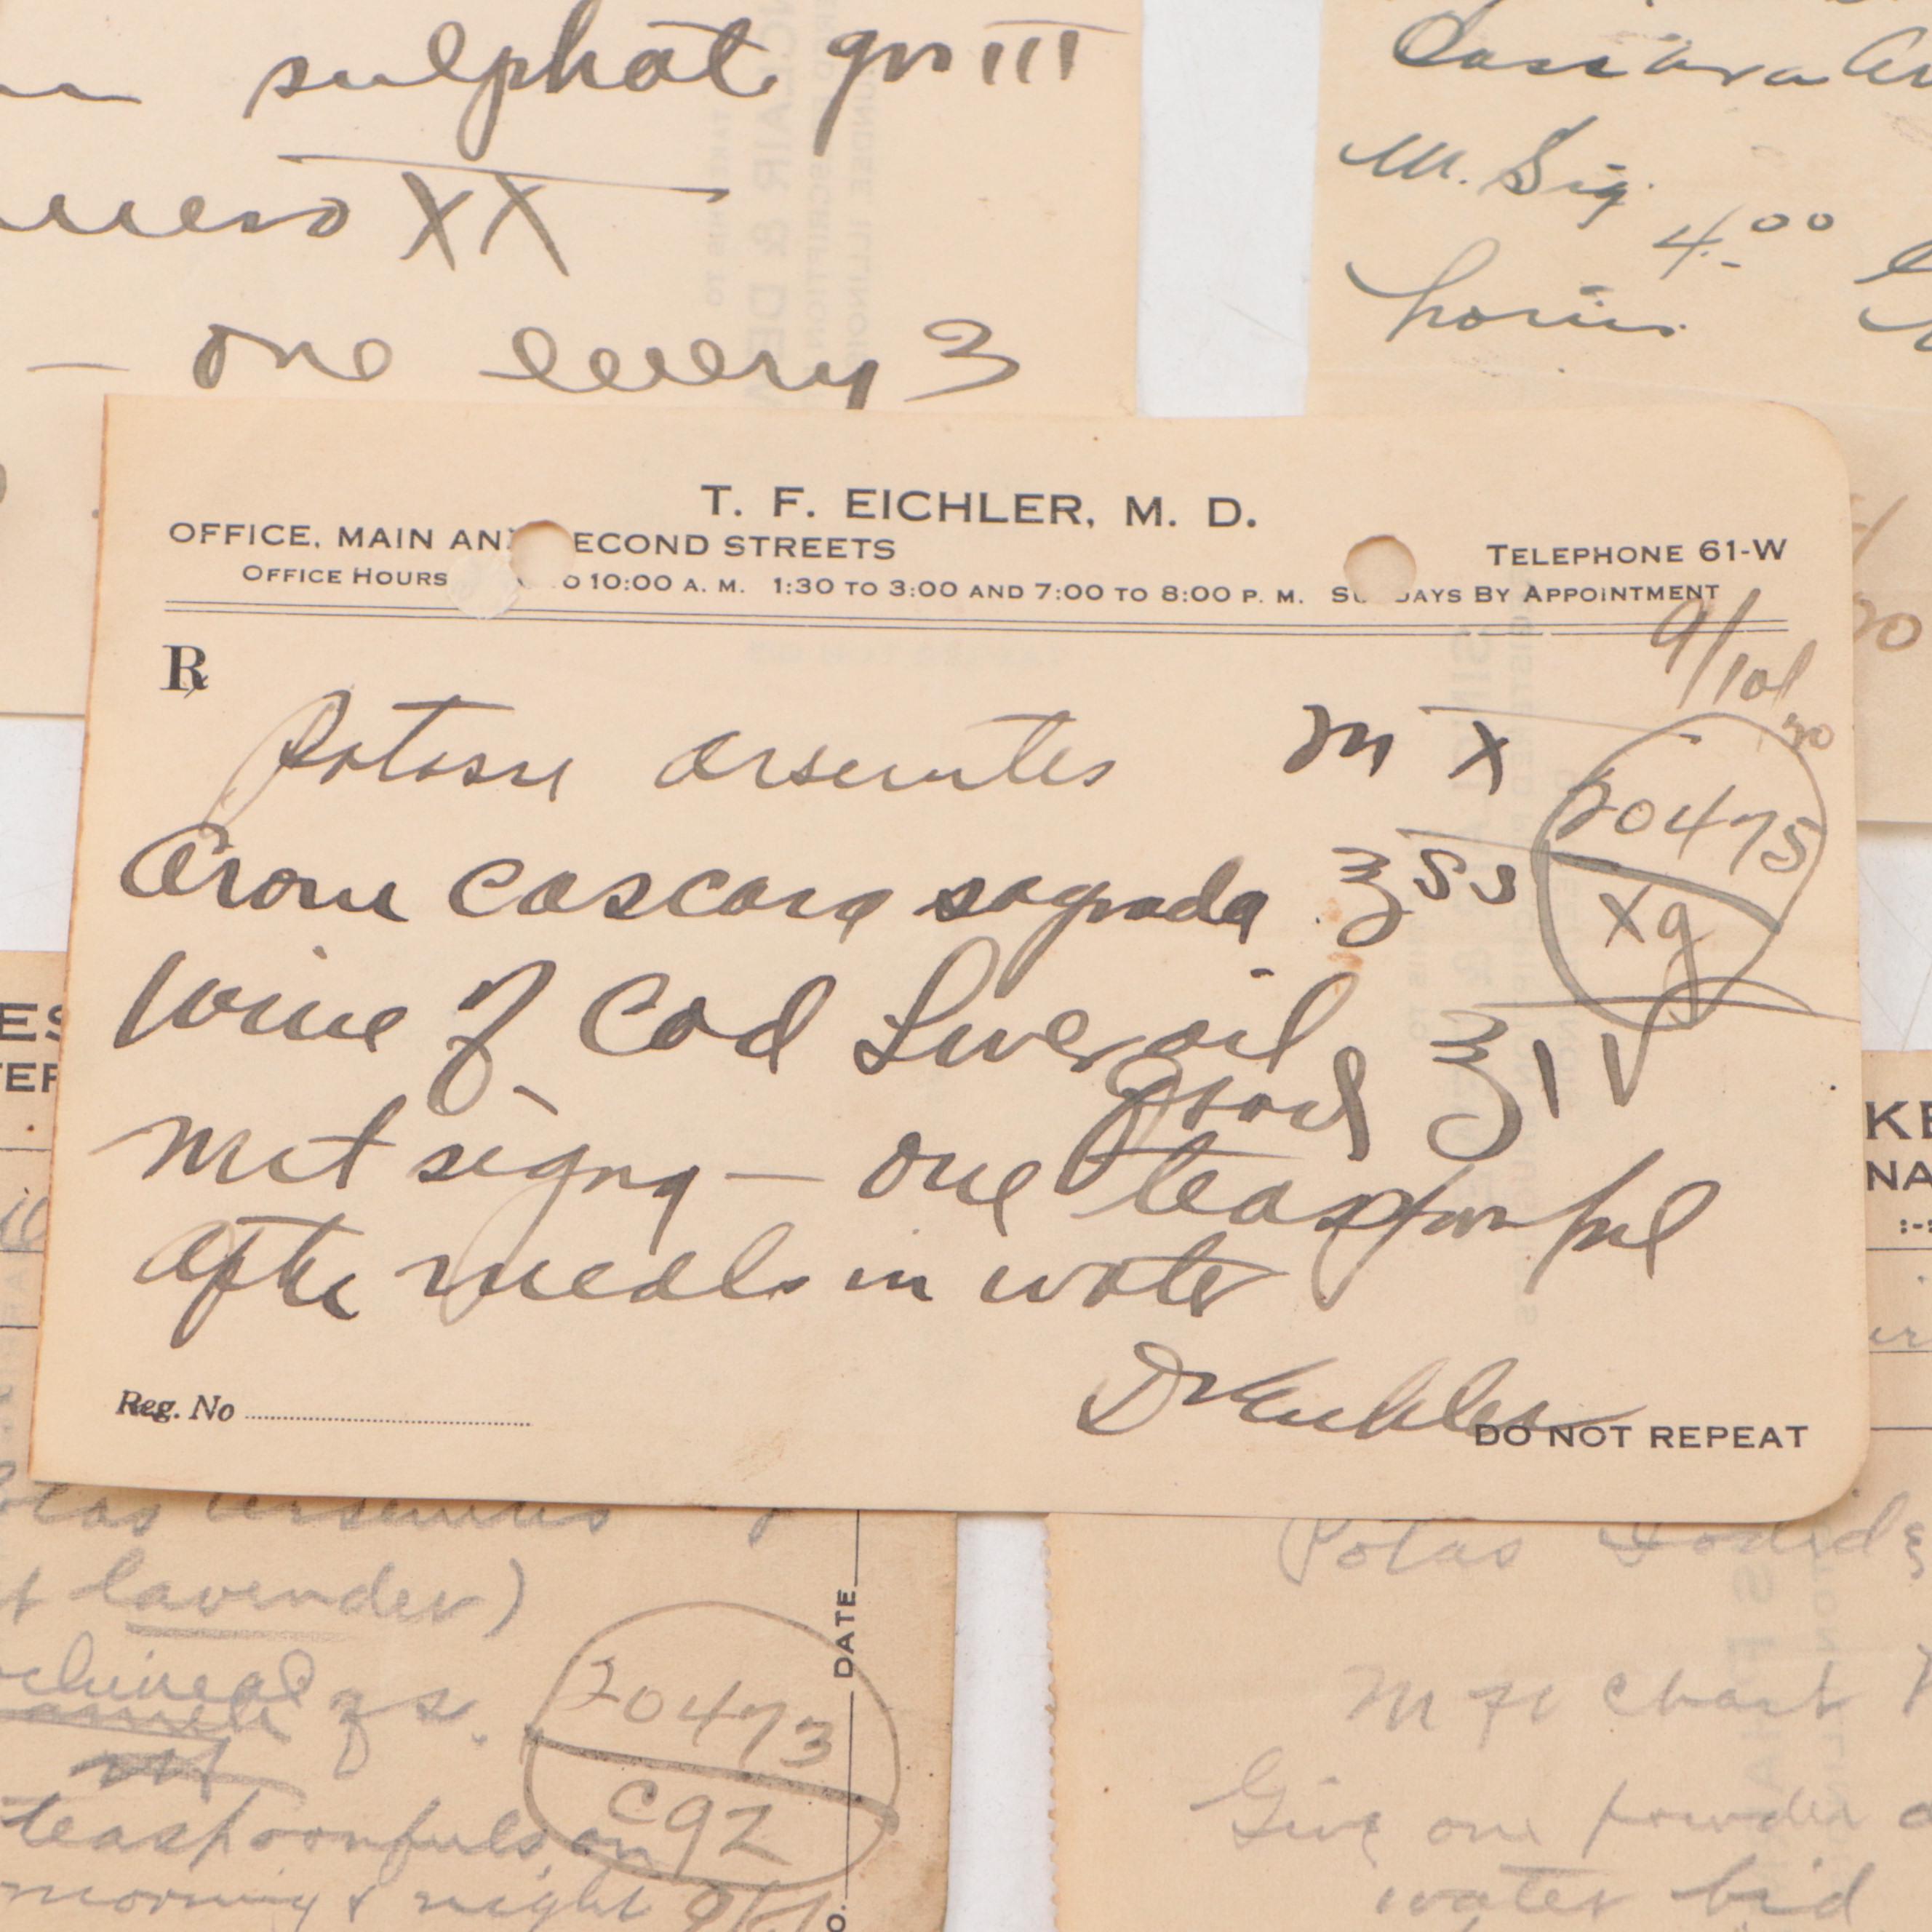 sulphat grs III
XX
— one every 3
M. Sig.
4.00
hours.
T. F. EICHLER, M. D.
OFFICE, MAIN AND SECOND STREETS
TELEPHONE 61-W
OFFICE HOURS O 10:00 A. M. 1:30 TO 3:00 AND 7:00 TO 8:00 P. M. SUNDAYS BY APPOINTMENT
℞
9/10/
20
Potassi arsenites m X
20475
Arom cascara sagrada ʒss
Xg
Wine of Cod Liver oil
ʒIV
Mit signa — one teaspoonful
after meals in water
Dr Eichler
Reg. No
DO NOT REPEAT
lavender)
DATE
20473
C92
teaspoonfuls
morning & night
Potas Iodid
chart
Give one powder
water bid